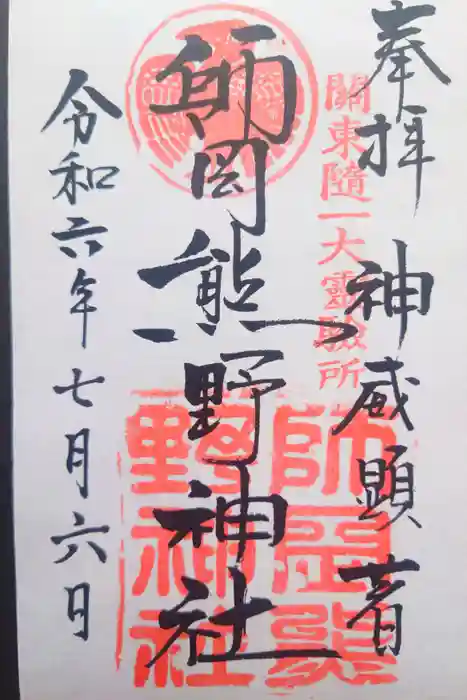 奉拝 神威顕著
關東随一大霊驗所
師岡熊野神社
師岡熊野神社
令和六年七月六日